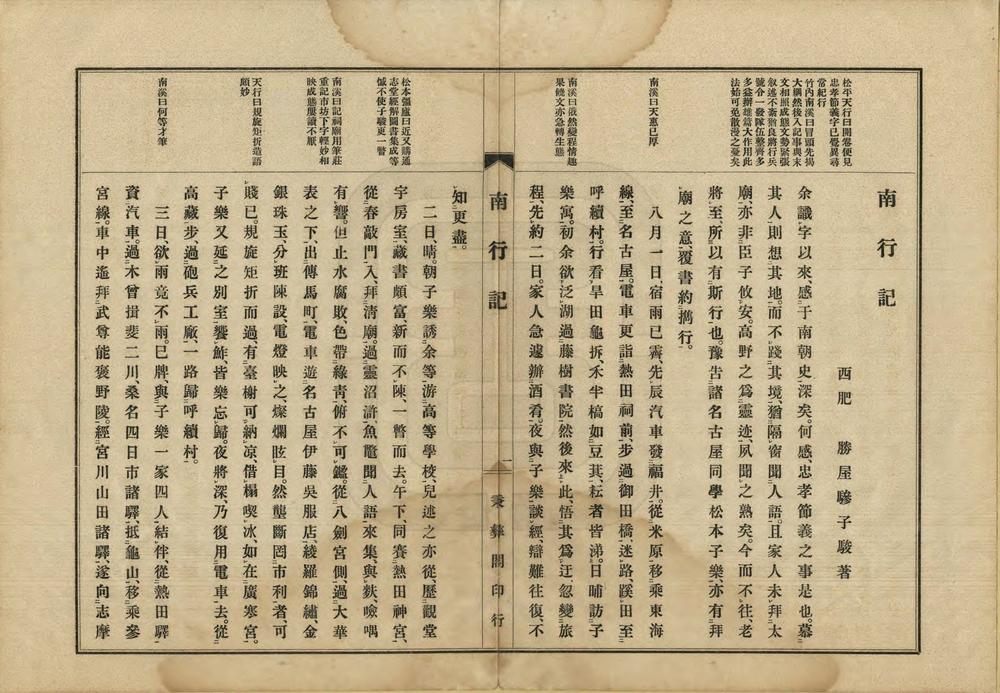 南行記
西肥　勝屋驂子駿著
余識字以來、感于南朝史、深矣。何感、忠孝節義之事是也。慕
其人、則想其地。而不踐其境、猶隔窗聞人語。且家人未拜太
廟、亦非臣子攸安。高野之爲靈迹、夙聞之熟矣。今而不往、老
將至、所以有斯行也。豫告諸名古屋同學松本子樂、亦有拜
廟之意、覆書約攜行。
八月一日、宿雨已霽、先辰汽車發福井。從米原移乘東海
線、至名古屋。電車更詣熱田祠前、步過御田橋、迷路、蹊田至
呼續村。行看旱田龜拆、禾半槁如豆萁、耘者皆涕。日晡訪子
樂寓。初余欲泛湖過藤樹書院、然後來此、悟其爲迂、忽變旅
程、先約二日。家人急遽辦酒肴。夜與子樂談經、辯難往復、不
知更盡。
二日、晴。朝子樂誘余等、游高等學校、兒述之亦從、歷觀堂
宇房室、藏書頗富、新而不陳、一瞥而去。午下、同賽熱田神宮、
從春敲門入、拜淸廟。過靈沼滸、魚鼈聞人語來集與麩、噞喁
有響。但止水腐敗、色帶綠靑、俯不可鑑。從八劍宮側過大華
表之下、出傳馬町、電車遊名古屋伊藤吳服店、綾羅錦繡、金
銀珠玉、分班陳設、電燈映之、燦爛眩目。然壟斷罔市利者、可
賤已。規旋矩折而過、有臺榭可納凉、借榻喫冰、如在廣寒宮。
子樂又延之別室、饗鮓、皆樂忘歸。夜將深、乃復用電車去。從
高藏步、過砲兵工廠、一路歸呼續村。
三日欲雨、竟不雨。巳牌、與子樂一家四人、結伴、從熱田驛、
資汽車。過木曾揖斐二川、桑名四日市諸驛、抵龜山、移乘參
宮線。車中遙拜武尊能褒野陵。經宮川山田諸驛、遂向志摩
松平天行曰開卷便見
忠孝節義字已覺異尋
常紀行
竹內南溪曰冒頭先揭
大綱然後入記事與末
文相照成態文勢緊張
叙述不紊猶良將行兵
號令一發隊伍整齊多
多益辦雄篇大作用此
法始可免散漫之憂矣
南溪曰天惠已厚
南溪曰忽然變程情趣
果饒文亦急轉生態
松本彊廬曰近又購通
志堂經解圖書集成等
憾不使子駿更一瞥
南溪曰記祠廟用筆莊
重記市坊下字輕妙相
映成態屢讀不厭
天行曰規旋矩折造語
頗妙
南溪曰何等才筆
南行記
一
秉彝閣印行